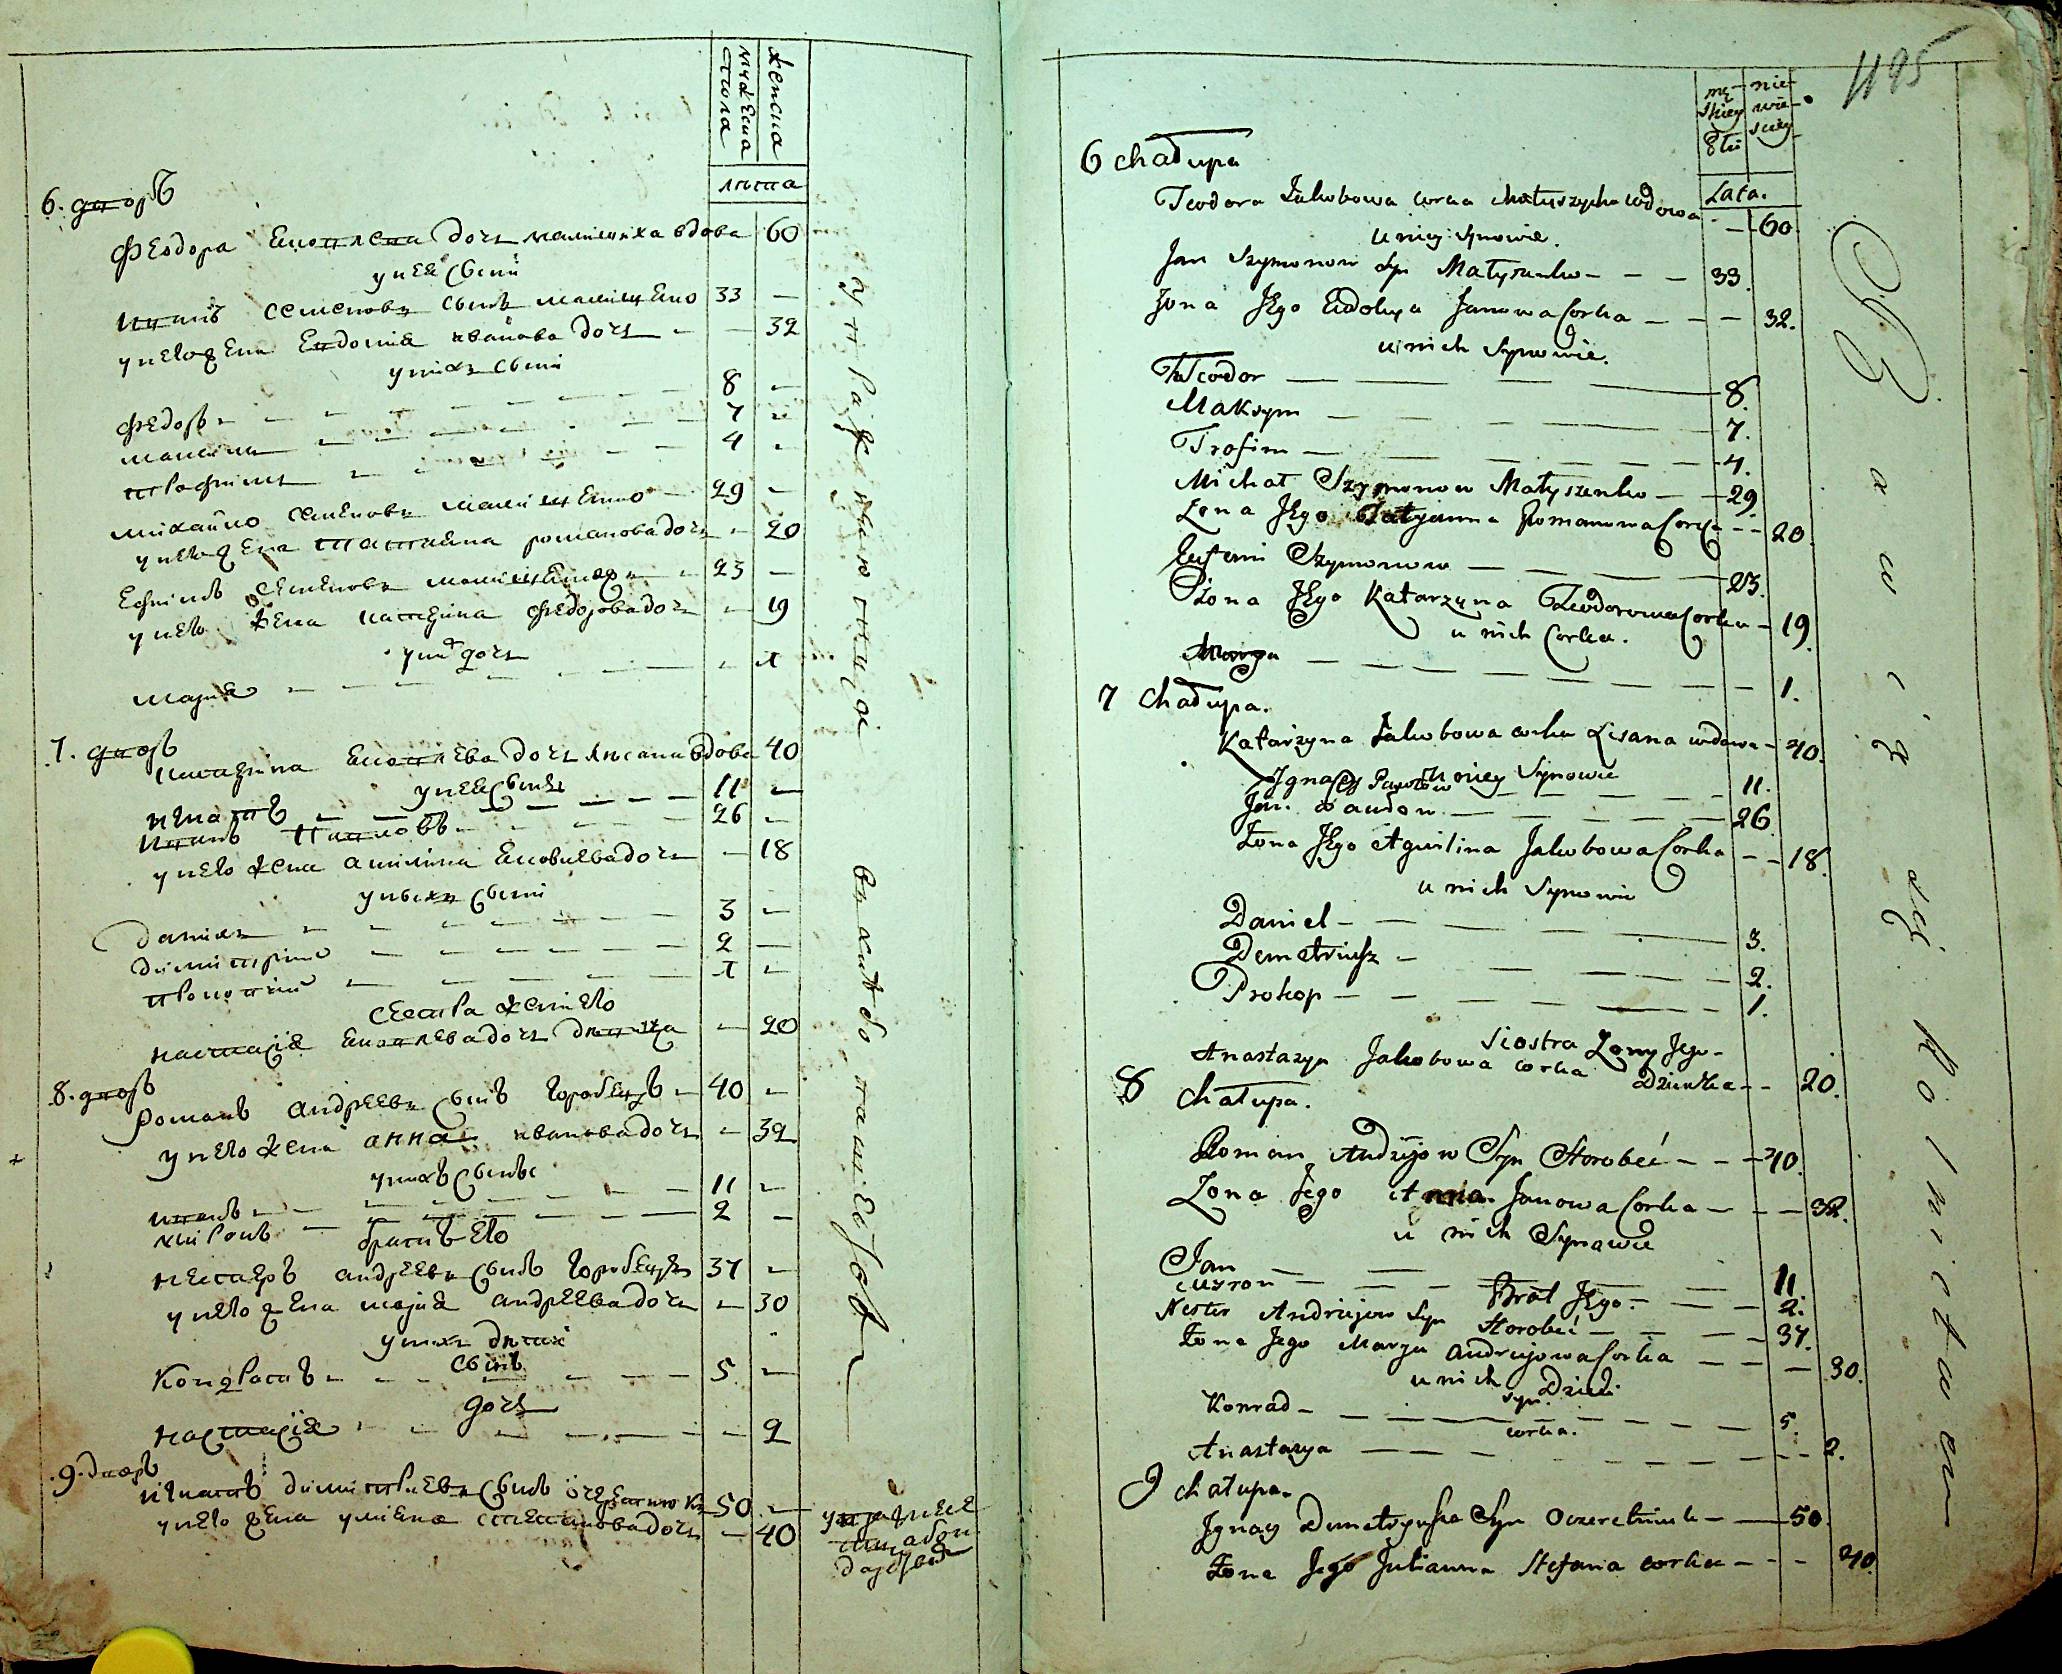 мужеска
стола
женска
лѣта
6. дворъ
Феодора Яковлева дочь матишиха вдова 60
у нея сыни
Иванъ Семеновъ сынъ матишенко 33 —
у него жена Евдокия иванова дочь — 32
у нихъ сыни
Федоръ 8 —
максимъ 7 —
трофимъ 4 —
михайло семеновъ матишенко 29 —
у него жена татияна романова дочь — 20
Ефимъ Семеновъ матишенко 23 —
у него жена катерина федорова дочь — 19
у них дочь
мария — 1
7. дворъ
катерина Яковлева дочь лисана вдова 40
у нея сыны
игнатъ 11 —
Иванъ Павловъ 26 —
у него жена акилина Яковлева дочь — 18
у нихъ сыни
данило 3 —
димитрий 2 —
прокопий 1 —
сестра жени его
настасия Яковлева дочь дѣвка — 20
8. дворъ
романъ андреевъ сынъ горобецъ 40 —
у него жена анна иванова дочь — 32
у нихъ сынове
иванъ 11 —
миронъ 2 —
братъ его
нестеръ андреевъ сынъ горобецъ 37 —
у него жена мария андреева дочь — 30
у нихъ дѣти
сынъ
Кондратъ 5 —
дочь
настасия — 2
9. дворъ
игнатъ димитриевъ сынъ 50 —
у него жена улиена стефанова дочь — 40
1195
mę-
skiey
Płci
nie-
wie-
sciey
Lata.
6 chałupa
Teodora Jakobowa corka Matyszycha wdowa — 60
u niey Synowie.
Jan Szymonow Syn Matyszenko — — 33.
Żona Jego Eudokya Janowa Corka — — — 32.
u nich Synowie.
Teodor — 8.
Maksym — 7.
Trofim — 4.
Michał Szymonow Matyszenko — — 29.
Żona Jego Tatyanna Romanowa Corka — — 20.
Eufemi Szymonow — 23.
Żona Jego Katarzyna Teodorowa Corka — 19.
u nich Corka.
Marya — 1.
7 Chałupa.
Katarzyna Jakobowa corka Lisana wdowa — 40.
u niey Synowie
Ignacy — 11.
Jan Pawłow — 26
Żona Jego Aquilina Jakobowa Corka — — 18.
u nich Synowie
Daniel — 3.
Demetriusz — 2.
Prokop — 1.
Siostra Żony Jego —
Anastazya Jakobowa corka Dziewka — — 20.
8 Chałupa.
Roman Andrijow Syn Horobeć — — — 40.
Żona Jego Anna Janowa Corka — — — 32.
u nich Synowie
Jan — 11
Miron — 2.
Brat Jego.
Nester Andriejow Syn Horobeć — 37.
Żona Jego Marya Andriejowa Corka — — — 30.
u nich Dzieci.
syn.
Konrad — 5.
corka.
Anastazya — 2.
9 chałupa.
Ignacy Dymetryusza Syn Oczeretniuk — 50.
Żona Jego Julianna Stefana corka — — — 40.